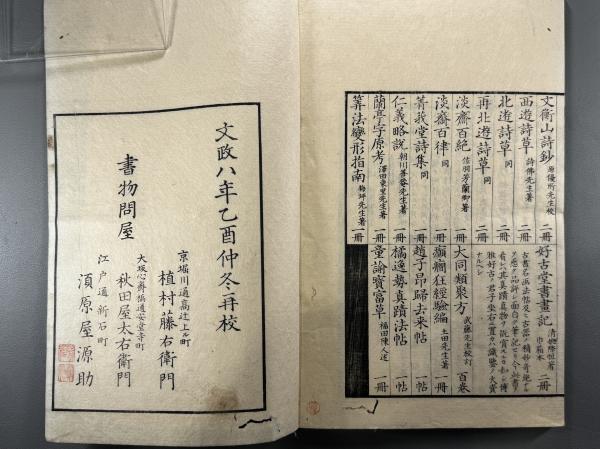 文衡山詩鈔 原優所先生校 二冊
西遊詩草 詩佛先生著 二冊
北遊詩草 同 二冊
再北遊詩草 同 二冊
淡齋百絶 佐羽芳蘭卿著 一冊
淡齋百律 同 一冊
菁我堂詩集 同 一冊
仁義略說 朝川善菴先生著 一冊
蘭亭序原考 澤田東里先生著 一冊
算法變形指南 梅坪先生著 一冊
好古堂書畫記 清姚際恒著 巾箱本 二冊
大同類聚方 武藤先生校訂 百卷
癲癇狂經驗編 土田先生著 一冊
趙子昂歸去来帖 一帖
橘逸勢真蹟法帖 一帖
童諭寳富草 福田陳人述 一冊
文政八年乙酉仲冬再校
書物問屋
京堀川通高辻上ル町
植村藤右衛門
大坂心齋橋通安堂寺町
秋田屋太右衛門
江戸通新石町
須原屋源助